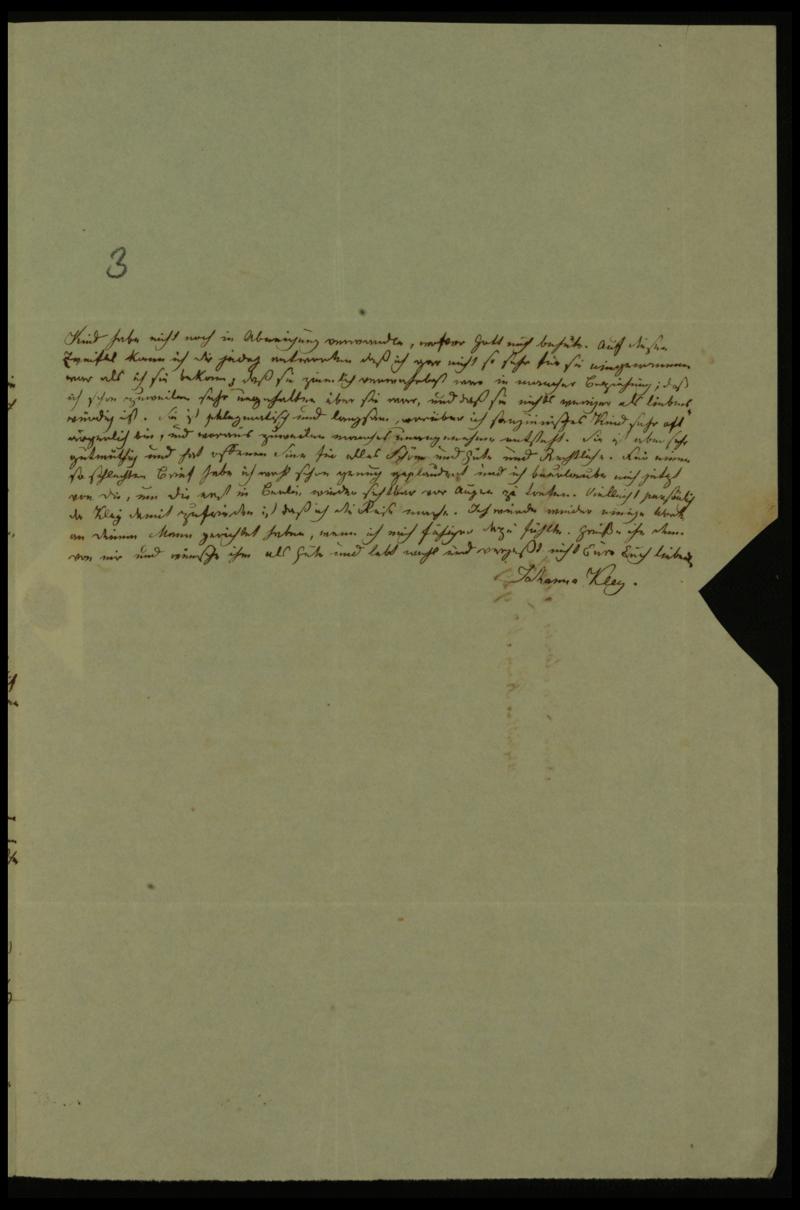 3
Kind habe nicht noch in Abneigung verwandle, wofür Gott mich behüte. Auf diesen
Zweifel kann ich dir jedoch antworten daß ich gar nicht so sehr für sie eingenommen
war als ich sie bekam, daß sie ziemlich verwahrlost war in mancher Beziehung; daß
ich schon zuweilen sehr ungehalten über sie war, und daß sie nichts weniger als liebens¬
würdig ist. Sie ist phlegmatisch und langsam, worüber ich sanguinisches Kind sehr oft
ärgerlich bin, und woraus zuweilen manches unangenehme entsteht. Sie ist aber sehr
gutmüthig und hat offenen Sinn für alles Schöne und Gute und Rechtliche. Für einen
so schlechten Brief habe ich wohl schon genug geplaudert und ich beurlaube mich jetzt
von dir, um dir erst in Berlin wieder sichtbar vor Augen zu treten. Vielleicht persönlich
da Kley damit zufrieden ist daß ich die Reise mache. Ich würde wieder einige Worte
an deinen Mann gerichtet haben, wenn ich mich fähiger dazu fühlte. Grüße ihn denn
von mir und wünsche ihm alles Gute und lebt wohl und vergeßt nicht Eure Euch liebende
Johanna Kley.